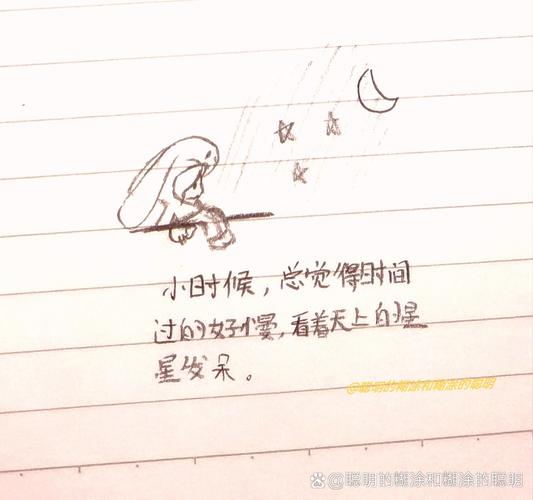 小时候，总觉得时间
过的好慢，看着天上的星
星发呆。
@聪明的糊涂和糊涂的聪明
@聪明的糊涂和糊涂的聪明